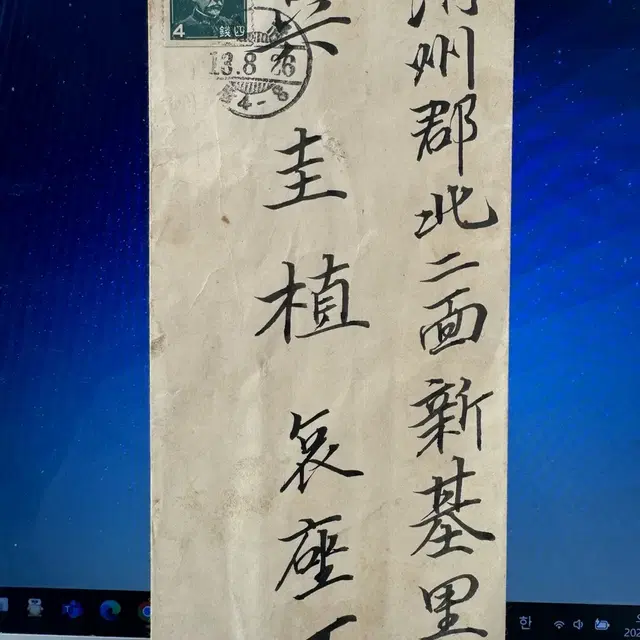 清州郡北二面新基里
圭植哀座
4
四錢
13.8.26
한